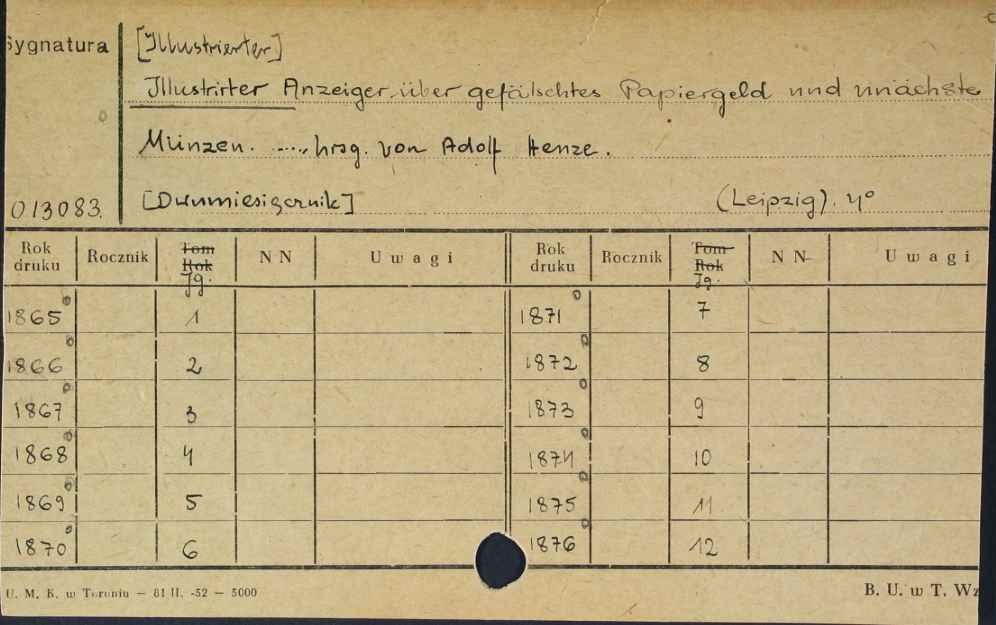 Sygnatura [Illustrierter]
Illustrirter Anzeiger über gefälschtes Papiergeld und unächste
Münzen. ...., hrsg. von Adolf Henze.
013083. [Dwumiesięcznik] (Leipzig). 4°
Rok druku Rocznik Tom Rok Jg. NN Uwagi Rok druku Rocznik Tom Rok Jg. NN Uwagi
1865 1 1871 7
1866 2 1872 8
1867 3 1873 9
1868 4 1874 10
1869 5 1875 11
1870 6 1876 12
U. M. K. w Toruniu — 81 II. -52 — 5000 B. U. w T. Wz